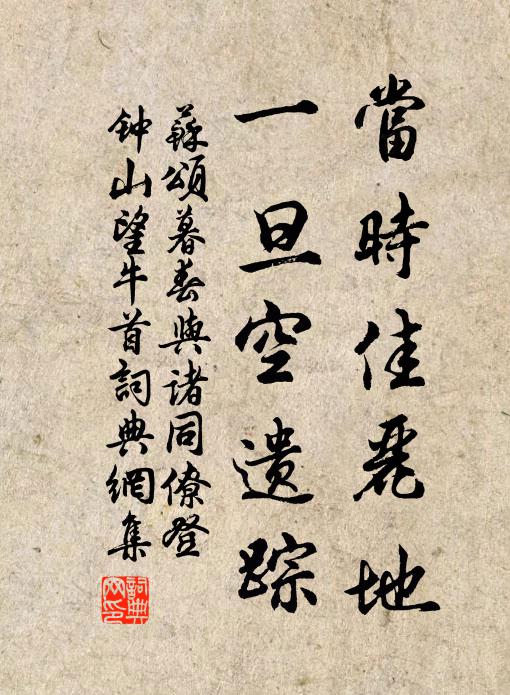 當時佳麗地
一旦空遺踪
蘇頌暮春與諸同僚登
钟山望牛首詞典網集